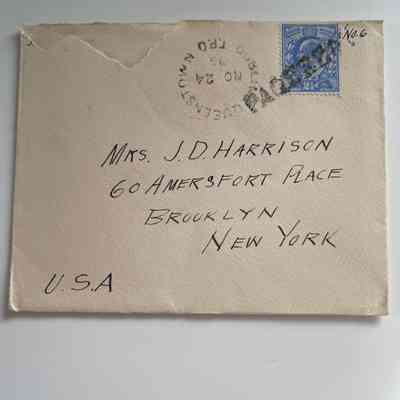 No. 6
QUEENSTOWN
NO 24
PAQUEBOT
MRS. J. D. HARRISON
60 AMERSFORT PLACE
BROOKLYN
NEW YORK
U.S.A